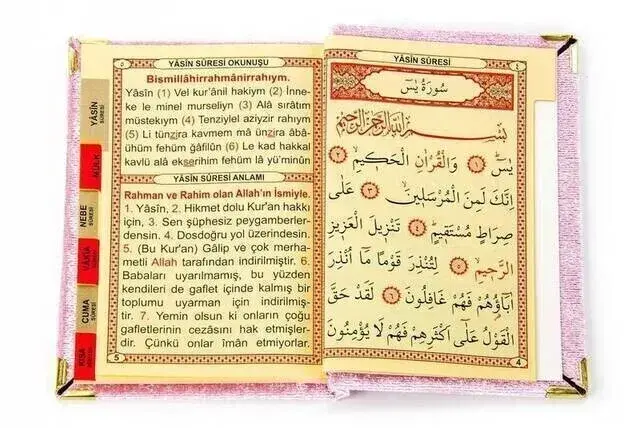 ٥
YÂSİN SÛRESİ OKUNUŞU
Bismillâhirrahmânirrahıym.
Yâsîn (1) Vel kur'ânil hakiym (2) İnne-
ke le minel murseliyn (3) Alâ sırâtım
müstekıym (4) Tenziylel aziyzir rahıym
(5) Li tünzira kavmem mâ ünzira âbâ-
ühüm fehüm gâfilûn (6) Le kad hakkal
kavlü alâ ekserihim fehüm lâ yü'minûn
YÂSİN SÛRESİ ANLAMI
Rahman ve Rahim olan Allah'ın İsmiyle.
1. Yâsîn, 2. Hikmet dolu Kur'an hakkı
için, 3. Sen şüphesiz peygamberler-
densin. 4. Dosdoğru yol üzerindesin.
5. (Bu Kur'an) Gâlip ve çok merha-
metli Allah tarafından indirilmiştir. 6.
Babaları uyarılmamış, bu yüzden
kendileri de gaflet içinde kalmış bir
toplumu uyarman için indirilmiş-
tir. 7. Yemin olsun ki onların çoğu
gafletlerinin cezasını hak etmişler-
dir. Çünkü onlar îmân etmiyorlar.
5
YÂSİN
SÛRESİ
MÜLK
NEBE
SÛRESİ
VÂKIA
CUMA
SÛRESİ
KISA
YÂSİN SÛRESİ
٤
سُورَةُ يٰسٓ
بِسْمِ اللّٰهِ الرَّحْمٰنِ الرَّحِيمِ
يٰسٓ ١ وَالْقُرْاٰنِ الْحَكِيمِ ٢
اِنَّكَ لَمِنَ الْمُرْسَلِينَ ٣ عَلٰى
صِرَاطٍ مُسْتَقِيمٍ ٤ تَنْزِيلَ الْعَزِيزِ
الرَّحِيمِ ٥ لِتُنْذِرَ قَوْمًا مَٓا اُنْذِرَ
اٰبَٓاؤُهُمْ فَهُمْ غَافِلُونَ ٦ لَقَدْ حَقَّ
الْقَوْلُ عَلٰٓى اَكْثَرِهِمْ فَهُمْ لَا يُؤْمِنُونَ
4